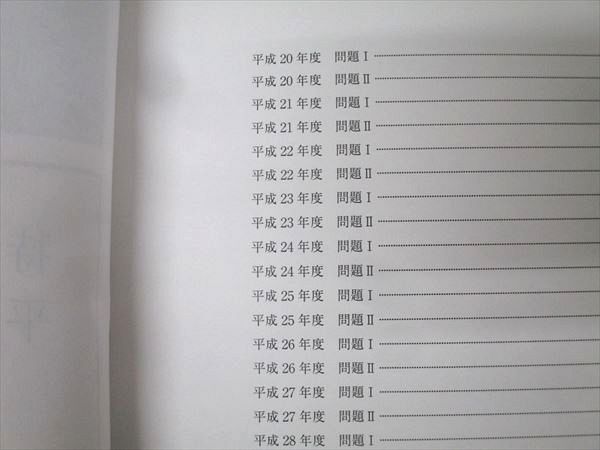 平成 20 年度 問題 I
平成 20 年度 問題 II
平成 21 年度 問題 I
平成 21 年度 問題 II
平成 22 年度 問題 I
平成 22 年度 問題 II
平成 23 年度 問題 I
平成 23 年度 問題 II
平成 24 年度 問題 I
平成 24 年度 問題 II
平成 25 年度 問題 I
平成 25 年度 問題 II
平成 26 年度 問題 I
平成 26 年度 問題 II
平成 27 年度 問題 I
平成 27 年度 問題 II
平成 28 年度 問題 I